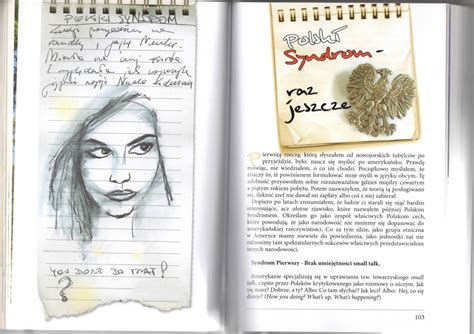 POLSKI SYNDROM
YOU DON'T DO THAT?
Polski
Syndrom –
raz
jeszcze
Pierwszą rzeczą, którą słyszałem od nowojorskich tubylców po
przyjeździe, było: naucz się myśleć po amerykańsku. Prawdę
mówiąc, nie wiedziałem, o co im chodzi. Początkowo myślałem, że
znaczy to, iż powinienem formułować moje myśli w języku obcym. Tę
zdolność przyswoiłem sobie niezauważalnie gdzieś między czwartym
a piątym rokiem pobytu. Potem zauważyłem, że teorią tą posługiwano
się, ilekroć szef nie dawał mi podwyżki albo coś mi się nie zabierał.
Dopiero po latach zrozumiałem, że ludzie ci starali się ująć bardzo
interesujące, acz ulotne zjawisko, które nazwałem później Polskim
Syndromem. Określam go jako zespół właściwych Polakom cech,
które powodują, że jako narodowość nie możemy się dopasować do
amerykańskiej rzeczywistości. Co za tym idzie, jako grupa etniczna
w Ameryce mamy niewiele do powiedzenia, jako jednostki zaś nie
odnosimy tam spektakularnych sukcesów właściwych przedstawicielom
innych narodowości.
Syndrom Pierwszy - Brak umiejętności small talk.
Amerykanie specjalizują się w uprawianiu tzw. towarzyskiego small
talk, często przez Polaków krytykowanego jako rozmowy o niczym. Jak
się masz? Dobrze, a ty? Albo: Co tam słychać? Jak leci? Albo: Hej, co się
dzieje? (How you doing? What's up, What's happening?)
103